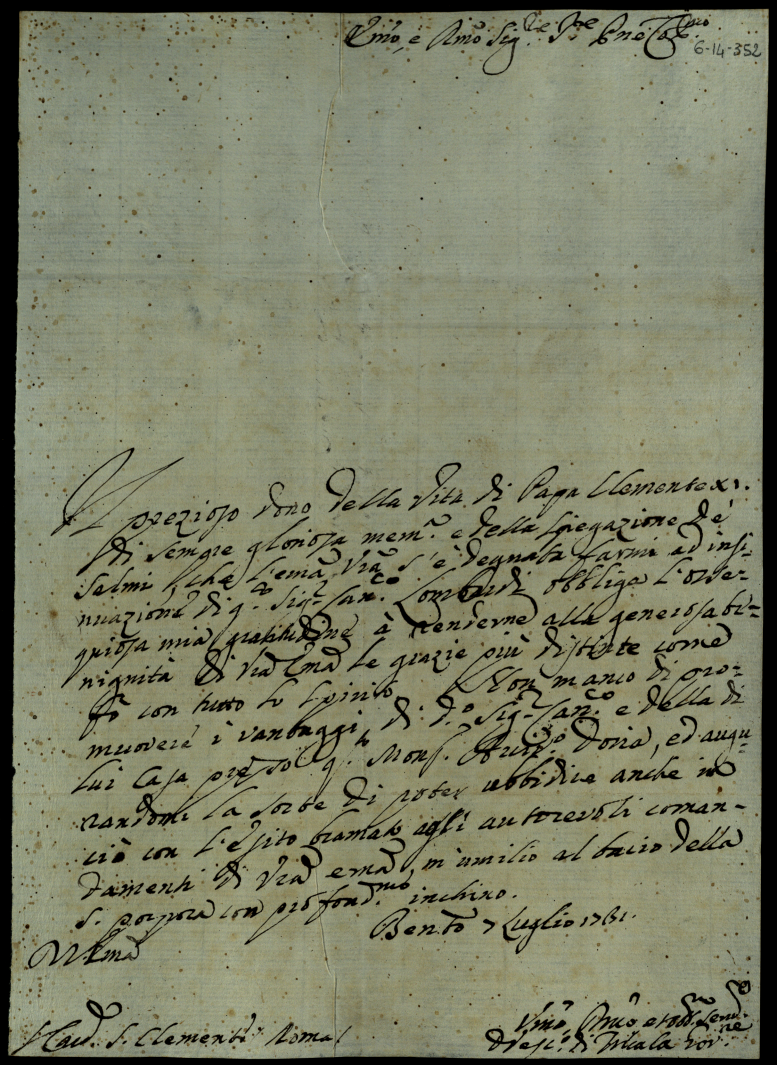 Emo, e Rmo Sigre Pre Pne Colmo
6-14-352
Il prezioso dono della Vita di Papa Clemente XI.
di sempre gloriosa mem.a e della spiegazione de'
Salmi, che l'Emza Vra s'è degnata farmi ad insi=
nuazione di q.o Sig.r Can.co Lombardi obbliga l'osse=
quiosa mia gratitudine à renderne alla generosa be=
nignità di Vra Emza le grazie più distinte come
fò con tutto lo spirito. Non manco di pro=
muovere i vantaggi di d.o Sig.r Can.co e della di
lui Casa presso q.to Mons.r Arciv.o Doria, ed augu=
randomi la sorte di poter ubbidire anche in
ciò con l'esito bramato agli autorevoli coman=
damenti di Vra Emza, m'umilio al bacio della
S. porpora con profond.mo inchino.
Bento 7 Luglio 1731.
Vra Emza
Card. S. Clemente Roma
Vmo,